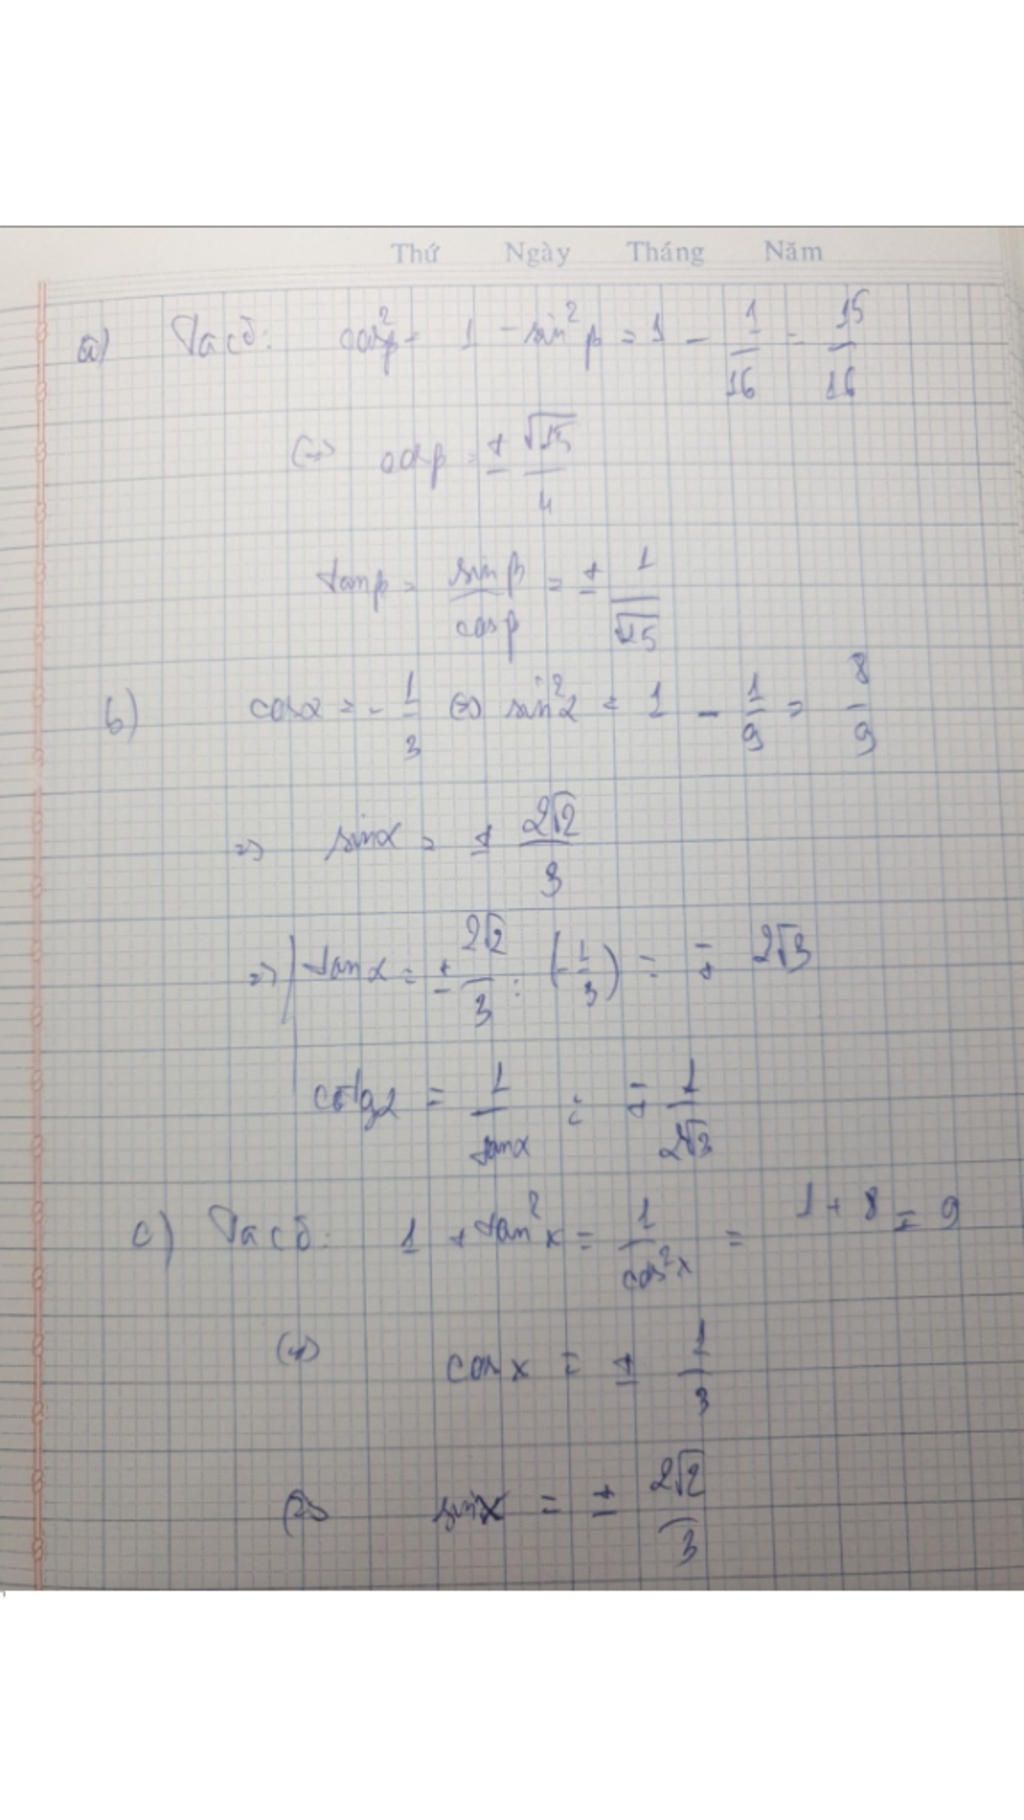 Thứ Ngày Tháng Năm
a) Ta có: cos²β = 1 - sin²β = 1 - 1/16 = 15/16
(=) cosβ = ± √15/4
tanβ = sinβ/cosβ = ± 1/√15
b) cosα = - 1/3 (=) sin²α = 1 - 1/9 = 8/9
=> sinα = ± 2√2/3
=> tanα = ± 2√2/3 : (-1/3) = ∓ 2√3
cotgα = 1/tanα = ∓ 1/2√3
c) Ta có: 1 + tan²x = 1/cos²x = 1 + 8 = 9
cosx = ± 1/3
sinx = ± 2√2/3